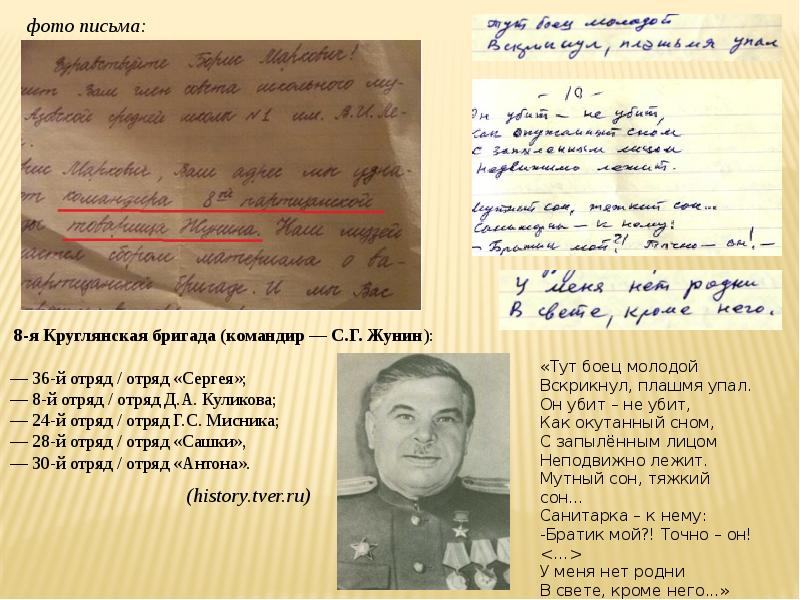 фото письма:
Здравствуйте Борис Маркович!
шит Вам член совета школьного му-
Азовской средней школы №1 им. В.И. Ле-
рис Маркович, Ваш адрес мы узна-
от командира 8ой партизанской
ды товарища Жунина. Наш музей
ается сбором материала о ва-
партизанской бригаде. И мы Вас
Тут боец молодой
Вскрикнул, плашмя упал
- 10 -
Он убит – не убит,
как окутанный сном
С запыленным лицом
Недвижимо лежит.
Мутный сон, тяжкий сон...
Санитарка – к нему:
- Братик мой?! Точно – он! –
У меня нет родни
В свете, кроме него.
8-я Круглянская бригада (командир — С.Г. Жунин):
— 36-й отряд / отряд «Сергея»;
— 8-й отряд / отряд Д.А. Куликова;
— 24-й отряд / отряд Г.С. Мисника;
— 28-й отряд / отряд «Сашки»,
— 30-й отряд / отряд «Антона».
(history.tver.ru)
«Тут боец молодой
Вскрикнул, плашмя упал.
Он убит – не убит,
Как окутанный сном,
С запылённым лицом
Неподвижно лежит.
Мутный сон, тяжкий
сон…
Санитарка – к нему:
-Братик мой?! Точно – он!
<…>
У меня нет родни
В свете, кроме него…»